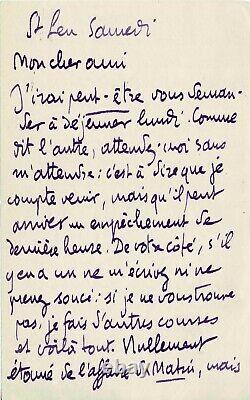 St Leu Samedi
Mon cher ami
J'irai peut-être vous deman-
der à déjeuner lundi. Comme
dit l'autre, attendez-moi sans
m'attendre : c'est à dire que je
compte venir, mais qu'il peut
arriver un empêchement de
dernière heure. De votre côté, s'il
y en a un ne m'écrivez ni ne
prenez souci : si je ne vous trouve
pas, je fais d'autres courses
et voilà tout. Nullement
étonné de l'affaire du Matin, mais